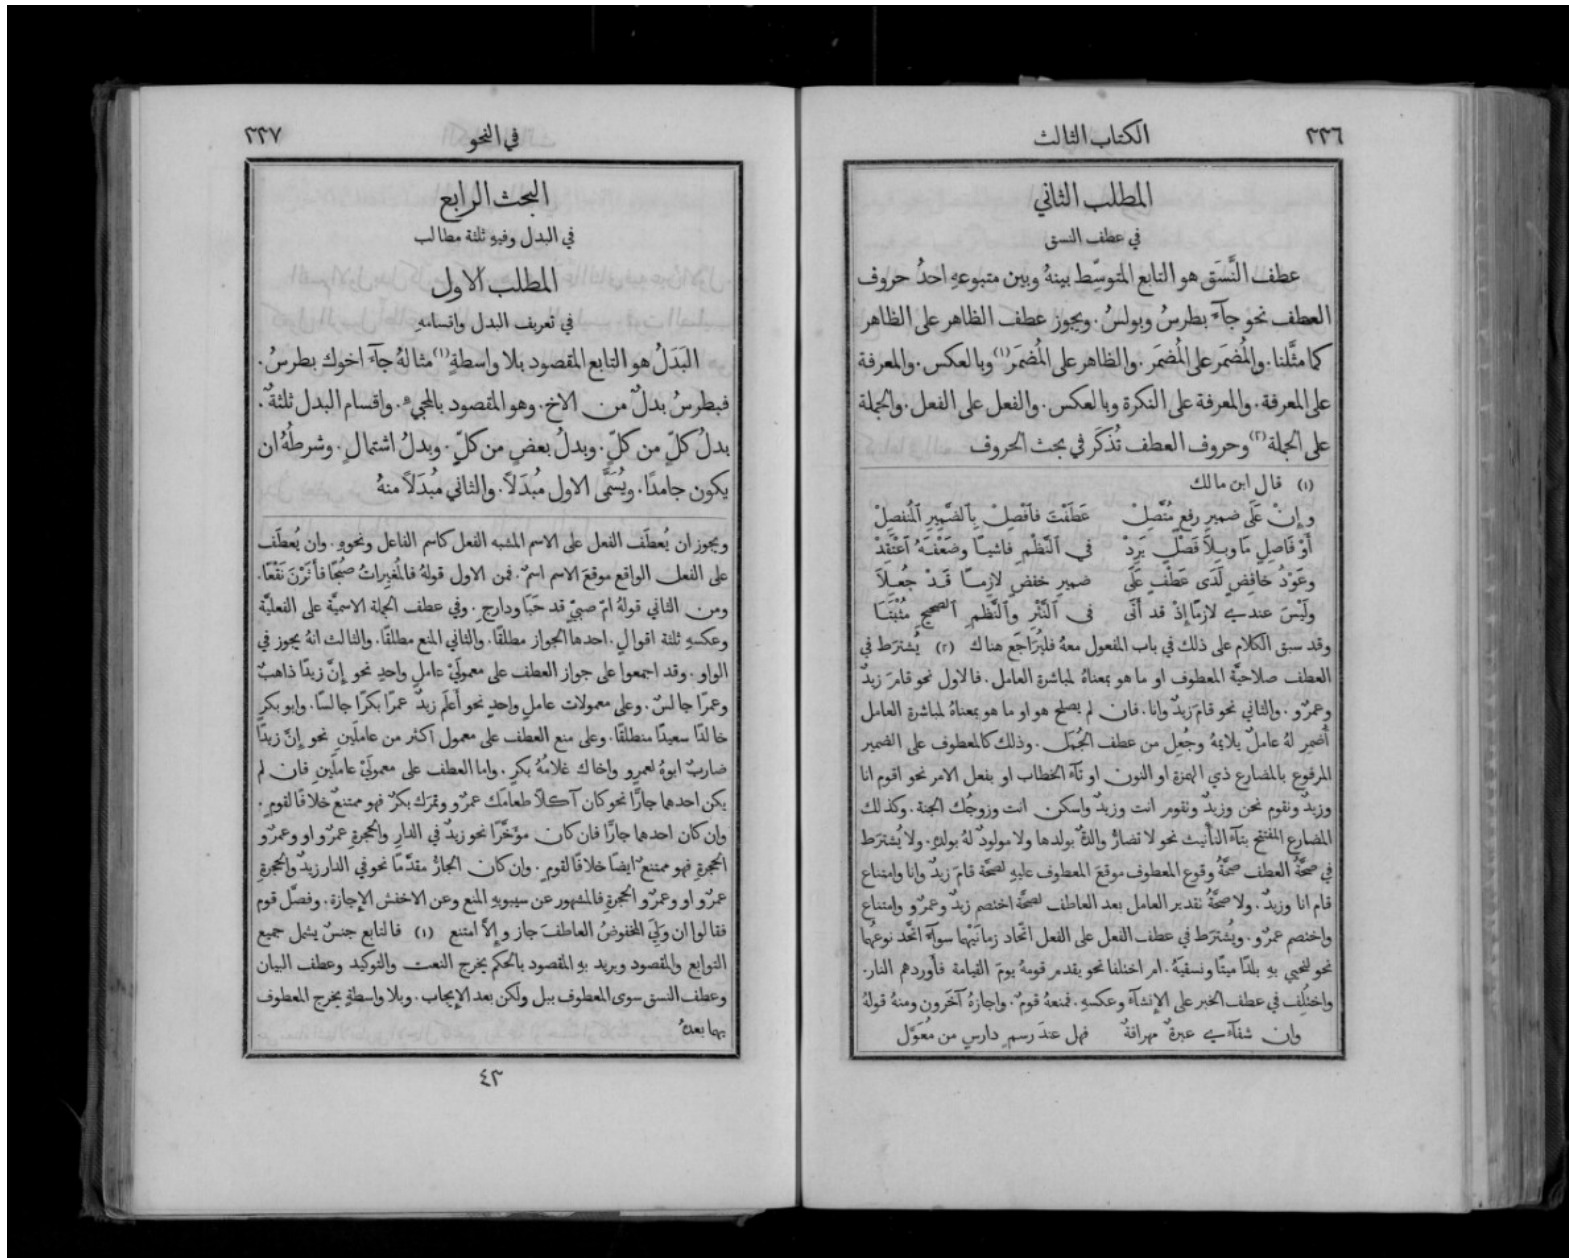 ٣٣٦
الكتاب الثالث
المطلب الثاني
في عطف النسق
عطف النَّسَق هو التابع المتوسِّط بينهُ وبين متبوعهِ احدُ حروف
العطف نحو جآءَ بطرسُ وبولسُ. ويجوز عطف الظاهر على الظاهر
كما مثَّلنا. والمُضمَر على المُضمَر. والظاهر على المُضمَر (١) وبالعكس. والمعرفة
على المعرفة. والمعرفة على النكرة وبالعكس. والفعل على الفعل. والجملة
على الجملة (٢) وحروف العطف تُذكَر في بحث الحروف
(١) قال ابن مالك
وإِنْ عَلَى ضميرِ رفعٍ مُتَّصِلْ عَطَفْتَ فَافْصِلْ بِالضَّمِيرِ المُنفصِلْ
أَوْ فَاصِلٍ مَا وبِلاَ فَصْلٍ يَرِدْ في النَّظْمِ فاشيًا وضَعْفَهُ اعْتَقِدْ
وعَوْدُ خافِضٍ لَدَى عَطْفٍ عَلَى ضميرِ خفضٍ لازمًا قَدْ جُعِلاَ
ولَيْسَ عندي لازمًا إِذْ قد أَتَى في النَّثْرِ والنَّظمِ الصحيحِ مُثْبَتَا
وقد سبق الكلام على ذلك في باب المفعول معهُ فليُرَاجَع هناك (٢) يُشترَط في
العطف صلاحيَّة المعطوف او ما هو بمعناهُ لمباشرة العامل. فالاول نحو قامَ زيدٌ
وعمرٌو. والثاني نحو قام زيدٌ وانا. فان لم يصلح هو او ما هو بمعناهُ لمباشرة العامل
أُضمِر لهُ عاملٌ يلايمهُ وجُعِل من عطف الجُمَل. وذلك كالمعطوف على الضمير
المرفوع بالمضارع ذي الهمزة او النون او تآءِ الخطاب او بفعل الامر نحو اقوم انا
وزيدٌ ونقوم نحن وزيدٌ وتقوم انت وزيدٌ واسكن انت وزوجُك الجنة. وكذلك
المضارع المفتتح بتآءِ التأنيث نحو لا تضارُّ والدةٌ بولدها ولا مولودٌ لهُ بولدهِ. ولا يُشترَط
في صحَّة العطف صحَّةُ وقوع المعطوف موقعَ المعطوف عليهِ لصحَّة قامَ زيدٌ وانا وامتناع
قام انا وزيدٌ. ولا صحَّةُ تقدير العامل بعد العاطف لصحَّة اختصم زيدٌ وعمرٌو وامتناع
واختصم عمرٌو. ويُشترَط في عطف الفعل على الفعل اتّحاد زمانَيهما سوآءٌ اتَّحد نوعهُما
نحو لنحيي بهِ بلدًا ميتًا ونسقيَهُ. ام اختلفا نحو يقدم قومهُ يومَ القيامة فأوردهم النار.
واختُلِف في عطف الخبر على الإنشآءِ وعكسهِ. فمنعهُ قومٌ. واجازهُ آخَرون ومنهُ قولهُ
وان شفآءي عبرةٌ مهراقةٌ فهل عندَ رسمٍ دارسٍ من مُعَوَّل
في النحو
٣٣٧
البحث الرابع
في البدل وفيهِ ثلثة مطالب
المطلب الاول
في تعريف البدل واقسامهِ
البَدَلُ هو التابع المقصود بلا واسطةٍ (١) مثالهُ جآءَ اخوك بطرسُ.
فبطرسُ بدلٌ من الاخ. وهو المقصود بالمجيءِ. واقسام البدل ثلثةٌ.
بدلُ كلٍّ من كلٍّ. وبدلُ بعضٍ من كلٍّ. وبدلُ اشتمالٍ. وشرطُهُ ان
يكون جامدًا. ويُسَمَّى الاول مُبْدَلاً. والثاني مُبْدَلاً منهُ
ويجوز ان يُعطَف الفعل على الاسم المشبه الفعل كاسم الفاعل ونحوهِ. وان يُعطَف
على الفعل الواقع موقعَ الاسم اسمٌ. فمن الاول قولهُ فالمُغيراتُ صُبْحًا فأَثَرْنَ نَقْعًا.
ومن الثاني قولهُ امّ صبيٍّ قد حَبَا ودارجٍ. وفي عطف الجملة الاسميَّة على الفعليَّة
وعكسهِ ثلثة اقوال. احدها الجواز مطلقًا. والثاني المنع مطلقًا. والثالث انهُ يجوز في
الواو. وقد اجمعوا على جواز العطف على معمولَيْ عاملٍ واحدٍ نحو إنَّ زيدًا ذاهبٌ
وعمرًا جالسٌ. وعلى معمولات عاملٍ واحدٍ نحو أَعلَم زيدٌ عمرًا بكرًا جالسًا. وابو بكرٍ
خالدًا سعيدًا منطلقًا. وعلى منع العطف على معمول اكثر من عاملَينِ نحو إنَّ زيدًا
ضاربٌ ابوهُ لعمرٍو واخاك غلامُهُ بكرٍ. واما العطف على معمولَيْ عاملَينِ فان لم
يكن احدهما جارًّا نحو كان آكلاً طعامَك عمرٌو وتمرَك بكرٌ فهو ممتنعٌ خلافًا لقومٍ.
وان كان احدهما جارًّا فان كان مؤخَّرًا نحو زيدٌ في الدارِ والحجرةِ عمرٌو او وعمرٌو
الحجرةِ فهو ممتنعٌ ايضًا خلافًا لقومٍ. وان كان الجارُّ مقدَّمًا نحو في الدار زيدٌ والحجرةِ
عمرٌو او وعمرٌو الحجرةِ فالمشهور عن سيبويهِ المنع وعن الاخفش الإجازة. وفصَّل قوم
فقالوا ان وَلِيَ المخفوضُ العاطفَ جاز وإِلاَّ امتنع (١) فالتابع جنسٌ يشمل جميع
التوابع والمقصود ويريد بهِ المقصود بالحكم يخرج النعت والتوكيد وعطف البيان
وعطف النسق سوى المعطوف ببل ولكن بعد الإيجاب. وبلا واسطةٍ يخرج المعطوف
بهما بعدهُ
٤٣